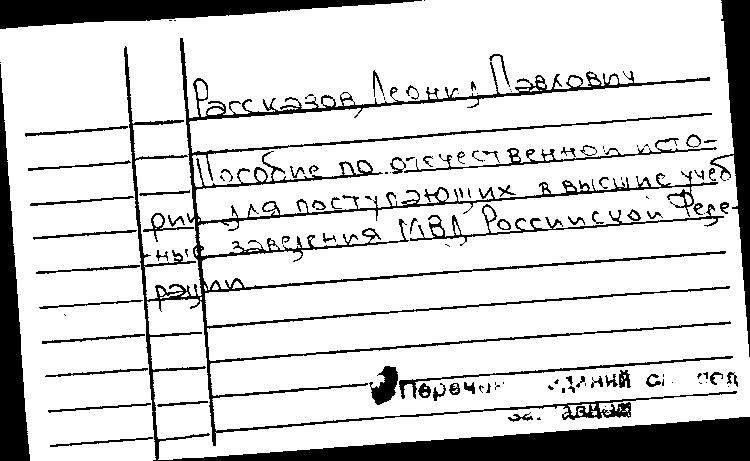 Рассказов, Леонид Павлович
Пособие по отечественной исто-
рии для поступающих в высшие учеб
ные заведения МВД Российской Феде-
рации